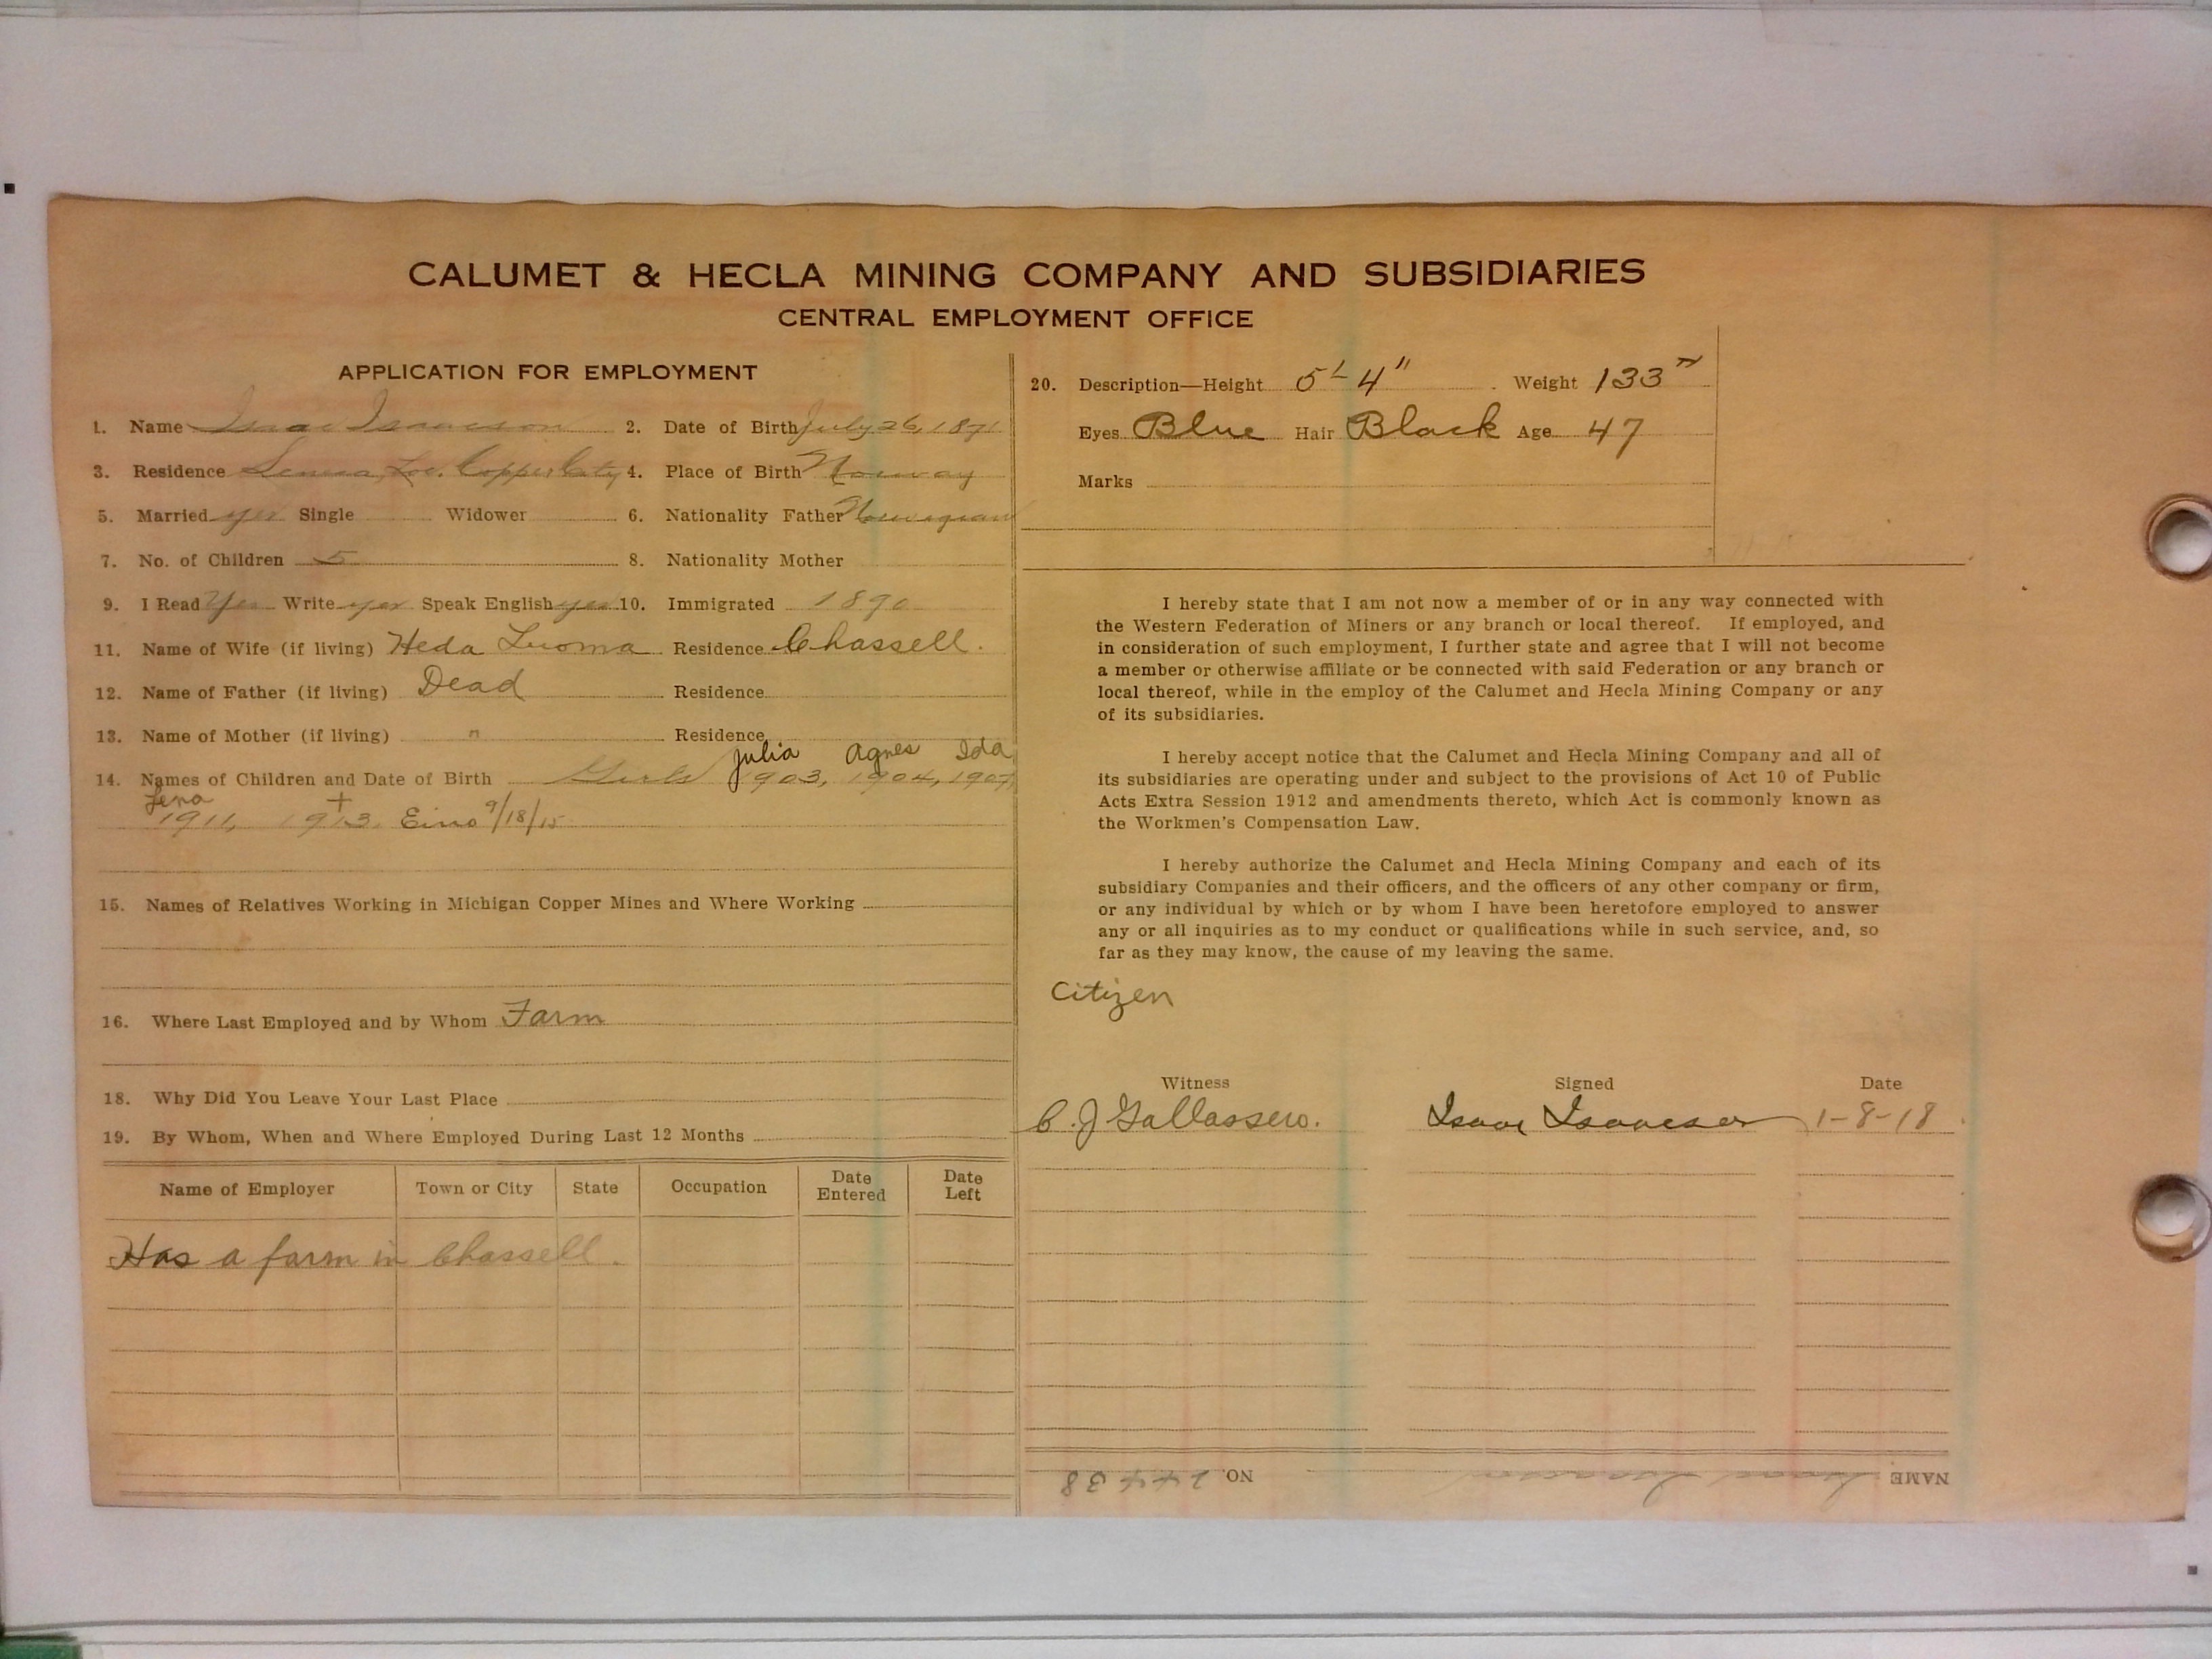 CALUMET & HECLA MINING COMPANY AND SUBSIDIARIES
CENTRAL EMPLOYMENT OFFICE
APPLICATION FOR EMPLOYMENT
1. Name Isaac Isaacson 2. Date of Birth July 26, 1871
3. Residence Seneca, Loc. Copper City 4. Place of Birth Norway
5. Married yes Single Widower 6. Nationality Father Norwegian
7. No. of Children 5 8. Nationality Mother
9. I Read Yes Write yes Speak English yes 10. Immigrated 1890
11. Name of Wife (if living) Heda Luoma Residence Chassell.
12. Name of Father (if living) Dead Residence
13. Name of Mother (if living) " Residence
Julia Agnes Ida
14. Names of Children and Date of Birth Girls 1903, 1904, 1907,
+
1911, 1913, Eino 9/18/15
15. Names of Relatives Working in Michigan Copper Mines and Where Working
16. Where Last Employed and by Whom Farm
18. Why Did You Leave Your Last Place
19. By Whom, When and Where Employed During Last 12 Months
Name of Employer Town or City State Occupation Date Entered Date Left
Has a farm in Chassell.
20. Description—Height 5' 4" Weight 133
Eyes Blue Hair Black Age 47
Marks
I hereby state that I am not now a member of or in any way connected with
the Western Federation of Miners or any branch or local thereof. If employed, and
in consideration of such employment, I further state and agree that I will not become
a member or otherwise affiliate or be connected with said Federation or any branch or
local thereof, while in the employ of the Calumet and Hecla Mining Company or any
of its subsidiaries.
I hereby accept notice that the Calumet and Hecla Mining Company and all of
its subsidiaries are operating under and subject to the provisions of Act 10 of Public
Acts Extra Session 1912 and amendments thereto, which Act is commonly known as
the Workmen's Compensation Law.
I hereby authorize the Calumet and Hecla Mining Company and each of its
subsidiary Companies and their officers, and the officers of any other company or firm,
or any individual by which or by whom I have been heretofore employed to answer
any or all inquiries as to my conduct or qualifications while in such service, and, so
far as they may know, the cause of my leaving the same.
Citizen
Witness Signed Date
C. J. Gallassero. Isaac Isaacson 1-8-18
NAME Isaac Isaacson NO.